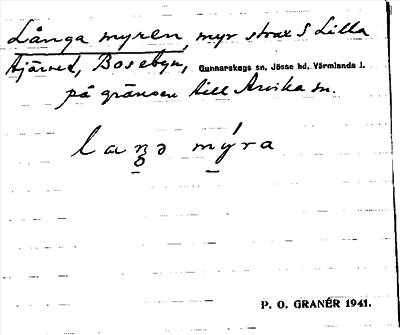 Långa myren, myr strax S Lilla
Hjärved, Bosebyn, Gunnarskogs sn, Jösse hd, Värmlands l.
på gränsen till Arvika sn.
laŋə mýra
P. O. GRANÉR 1941.